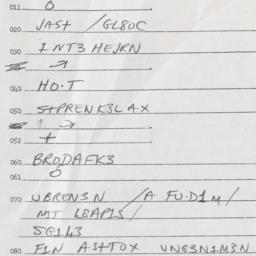 011 O
020 JASt /GL80C
030 INT3 HEJRN
→
040 HO·T
050 StPRENK3L AX
1 →
052 +
060 BRODAFK3
061 O
070 UBREN3N /A FU·D1M/
MT L8AP1S/
SG1L3
080 F1N AStTOX UNGSN1M3N